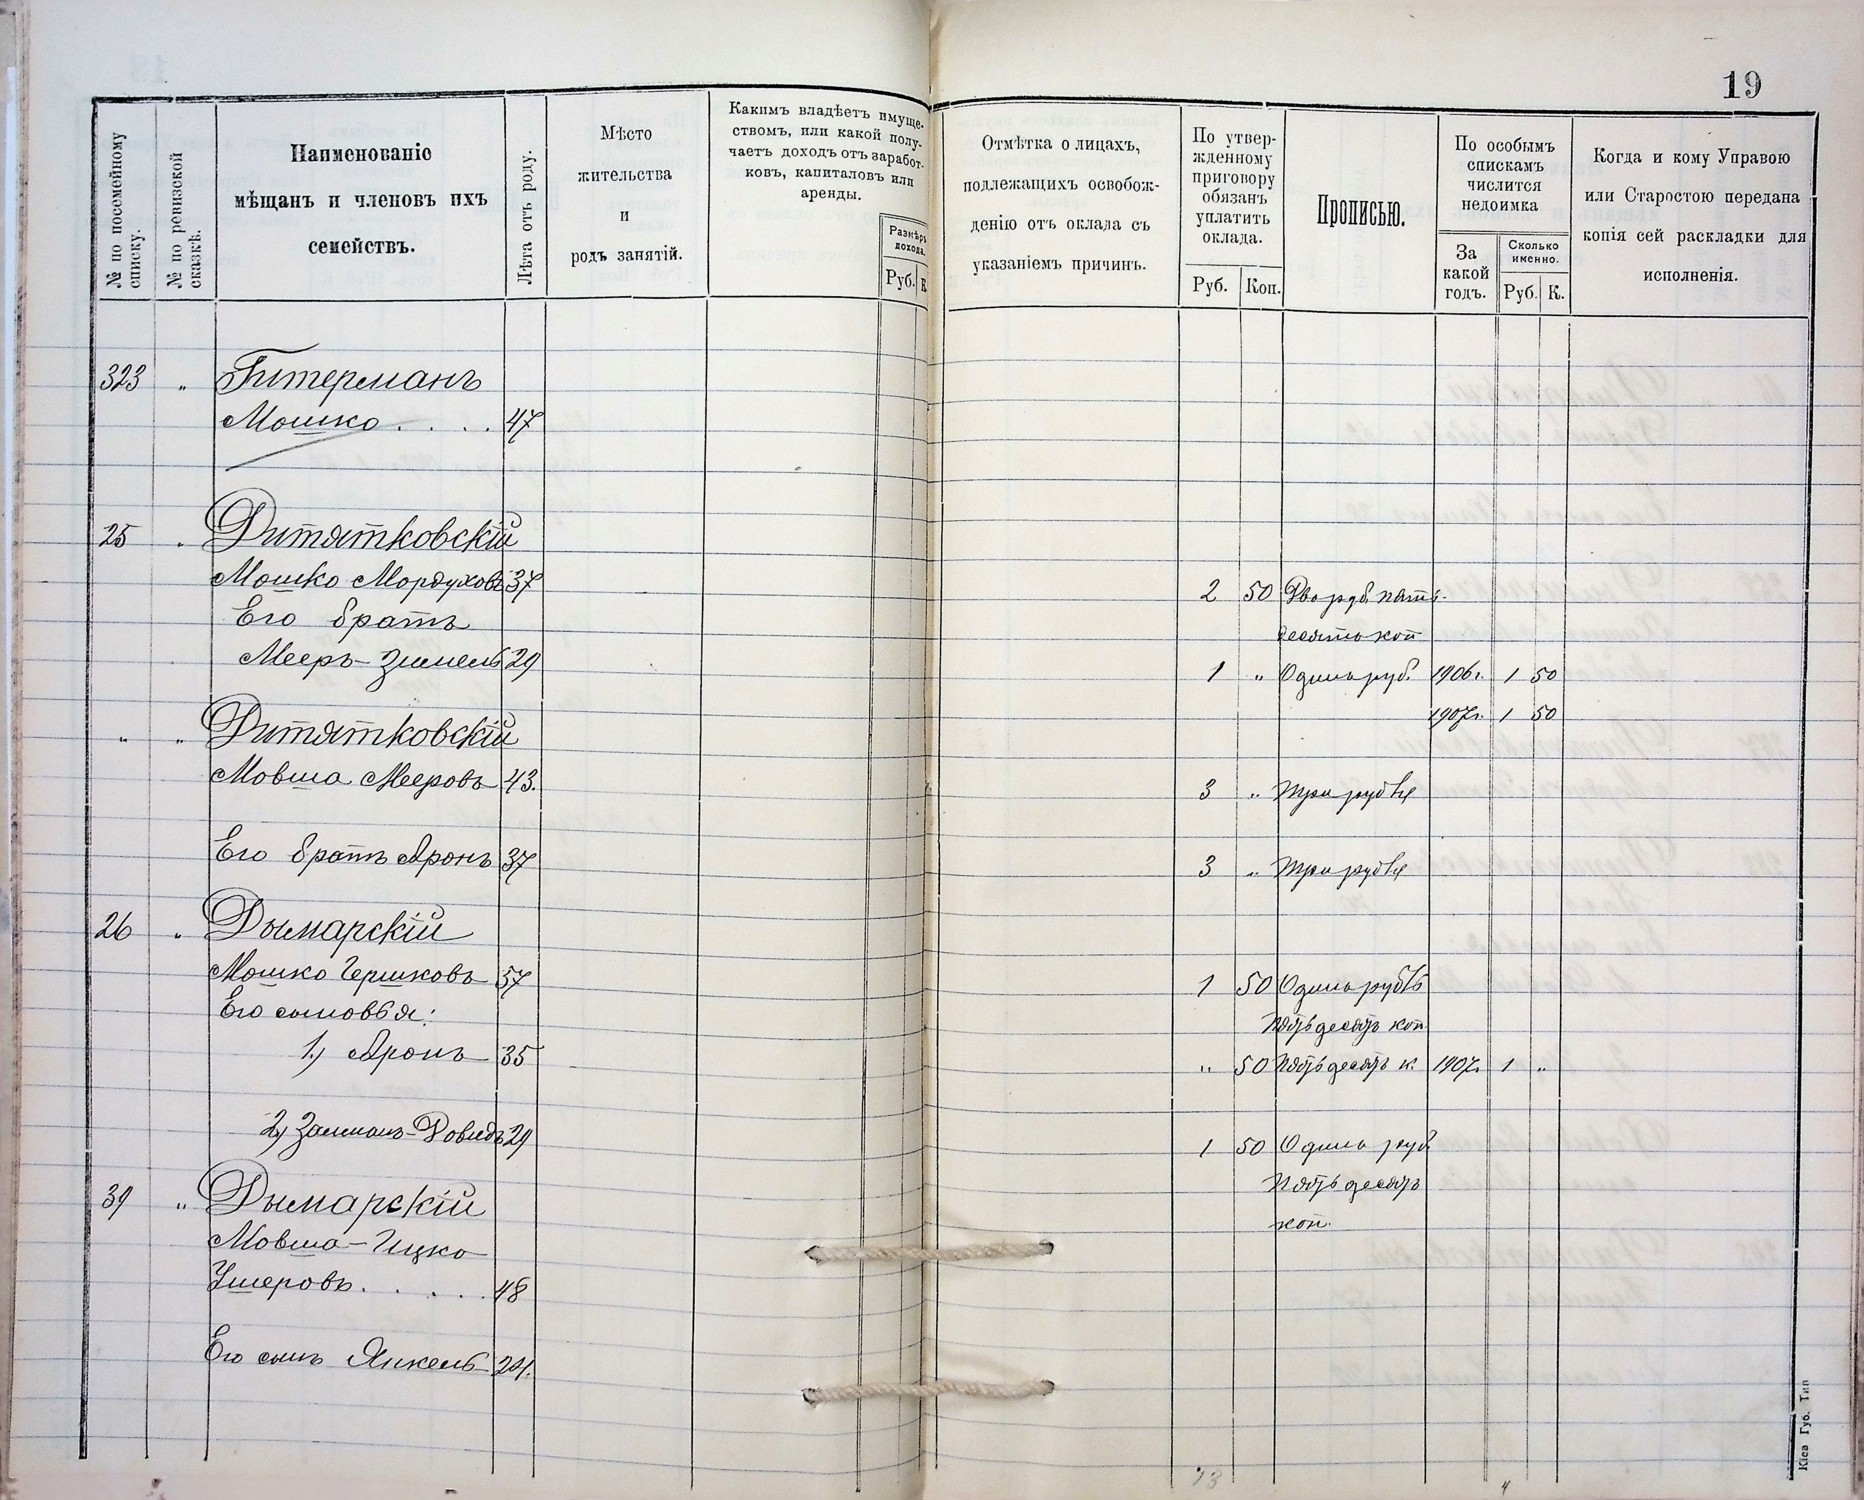 19
№ по посемейному списку.
№ по ревизской сказкѣ.
Наименованіе
мѣщанъ и членовъ ихъ
семействъ.
Лѣта отъ роду.
Мѣсто
жительства
и
родъ занятій.
Какимъ владѣетъ имуще-
ствомъ, или какой полу-
чаетъ доходъ отъ заработ-
ковъ, капиталовъ или
аренды.
Размѣръ
дохода.
Руб. К
Отмѣтка о лицахъ,
подлежащихъ освобож-
денію отъ оклада съ
указаніемъ причинъ.
По утвер-
жденному
приговору
обязанъ
уплатить
оклада.
Руб. Коп.
Прописью.
По особымъ
спискамъ
числится
недоимка
За
какой
годъ.
Сколько
именно.
Руб. К.
Когда и кому Управою
или Старостою передана
копія сей раскладки для
исполненія.
323 " Гитерманъ
Мошко . . . . 47
25 " Дитятковскій
Мошко Мордуховъ 37 2 50 Два руб. пять-
Его братъ десятъ коп
Мееръ-Зимель 29 1 " Одинъ руб. 1906г. 1 50
1907г. 1 50
" " Дитятковскій
Мовша Мееровъ 43. 3 " Три рубля
Его братъ Аронъ 37 3 " Три рубля
26 " Дымарскій
Мошко Гершковъ 57 1 50 Одинъ рубль
Его сыновья: пятьдесятъ коп
1) Аронъ 35 " 50 Пятьдесятъ к. 1907г. 1 "
2) Залманъ-Довидъ 29 1 50 Одинъ руб
Пятьдесятъ
коп.
39 " Дымарскій
Мовша-Ицко
Ушеровъ . . . . . 48
Его сынъ Янкель 24.
Кіев Губ. Тип